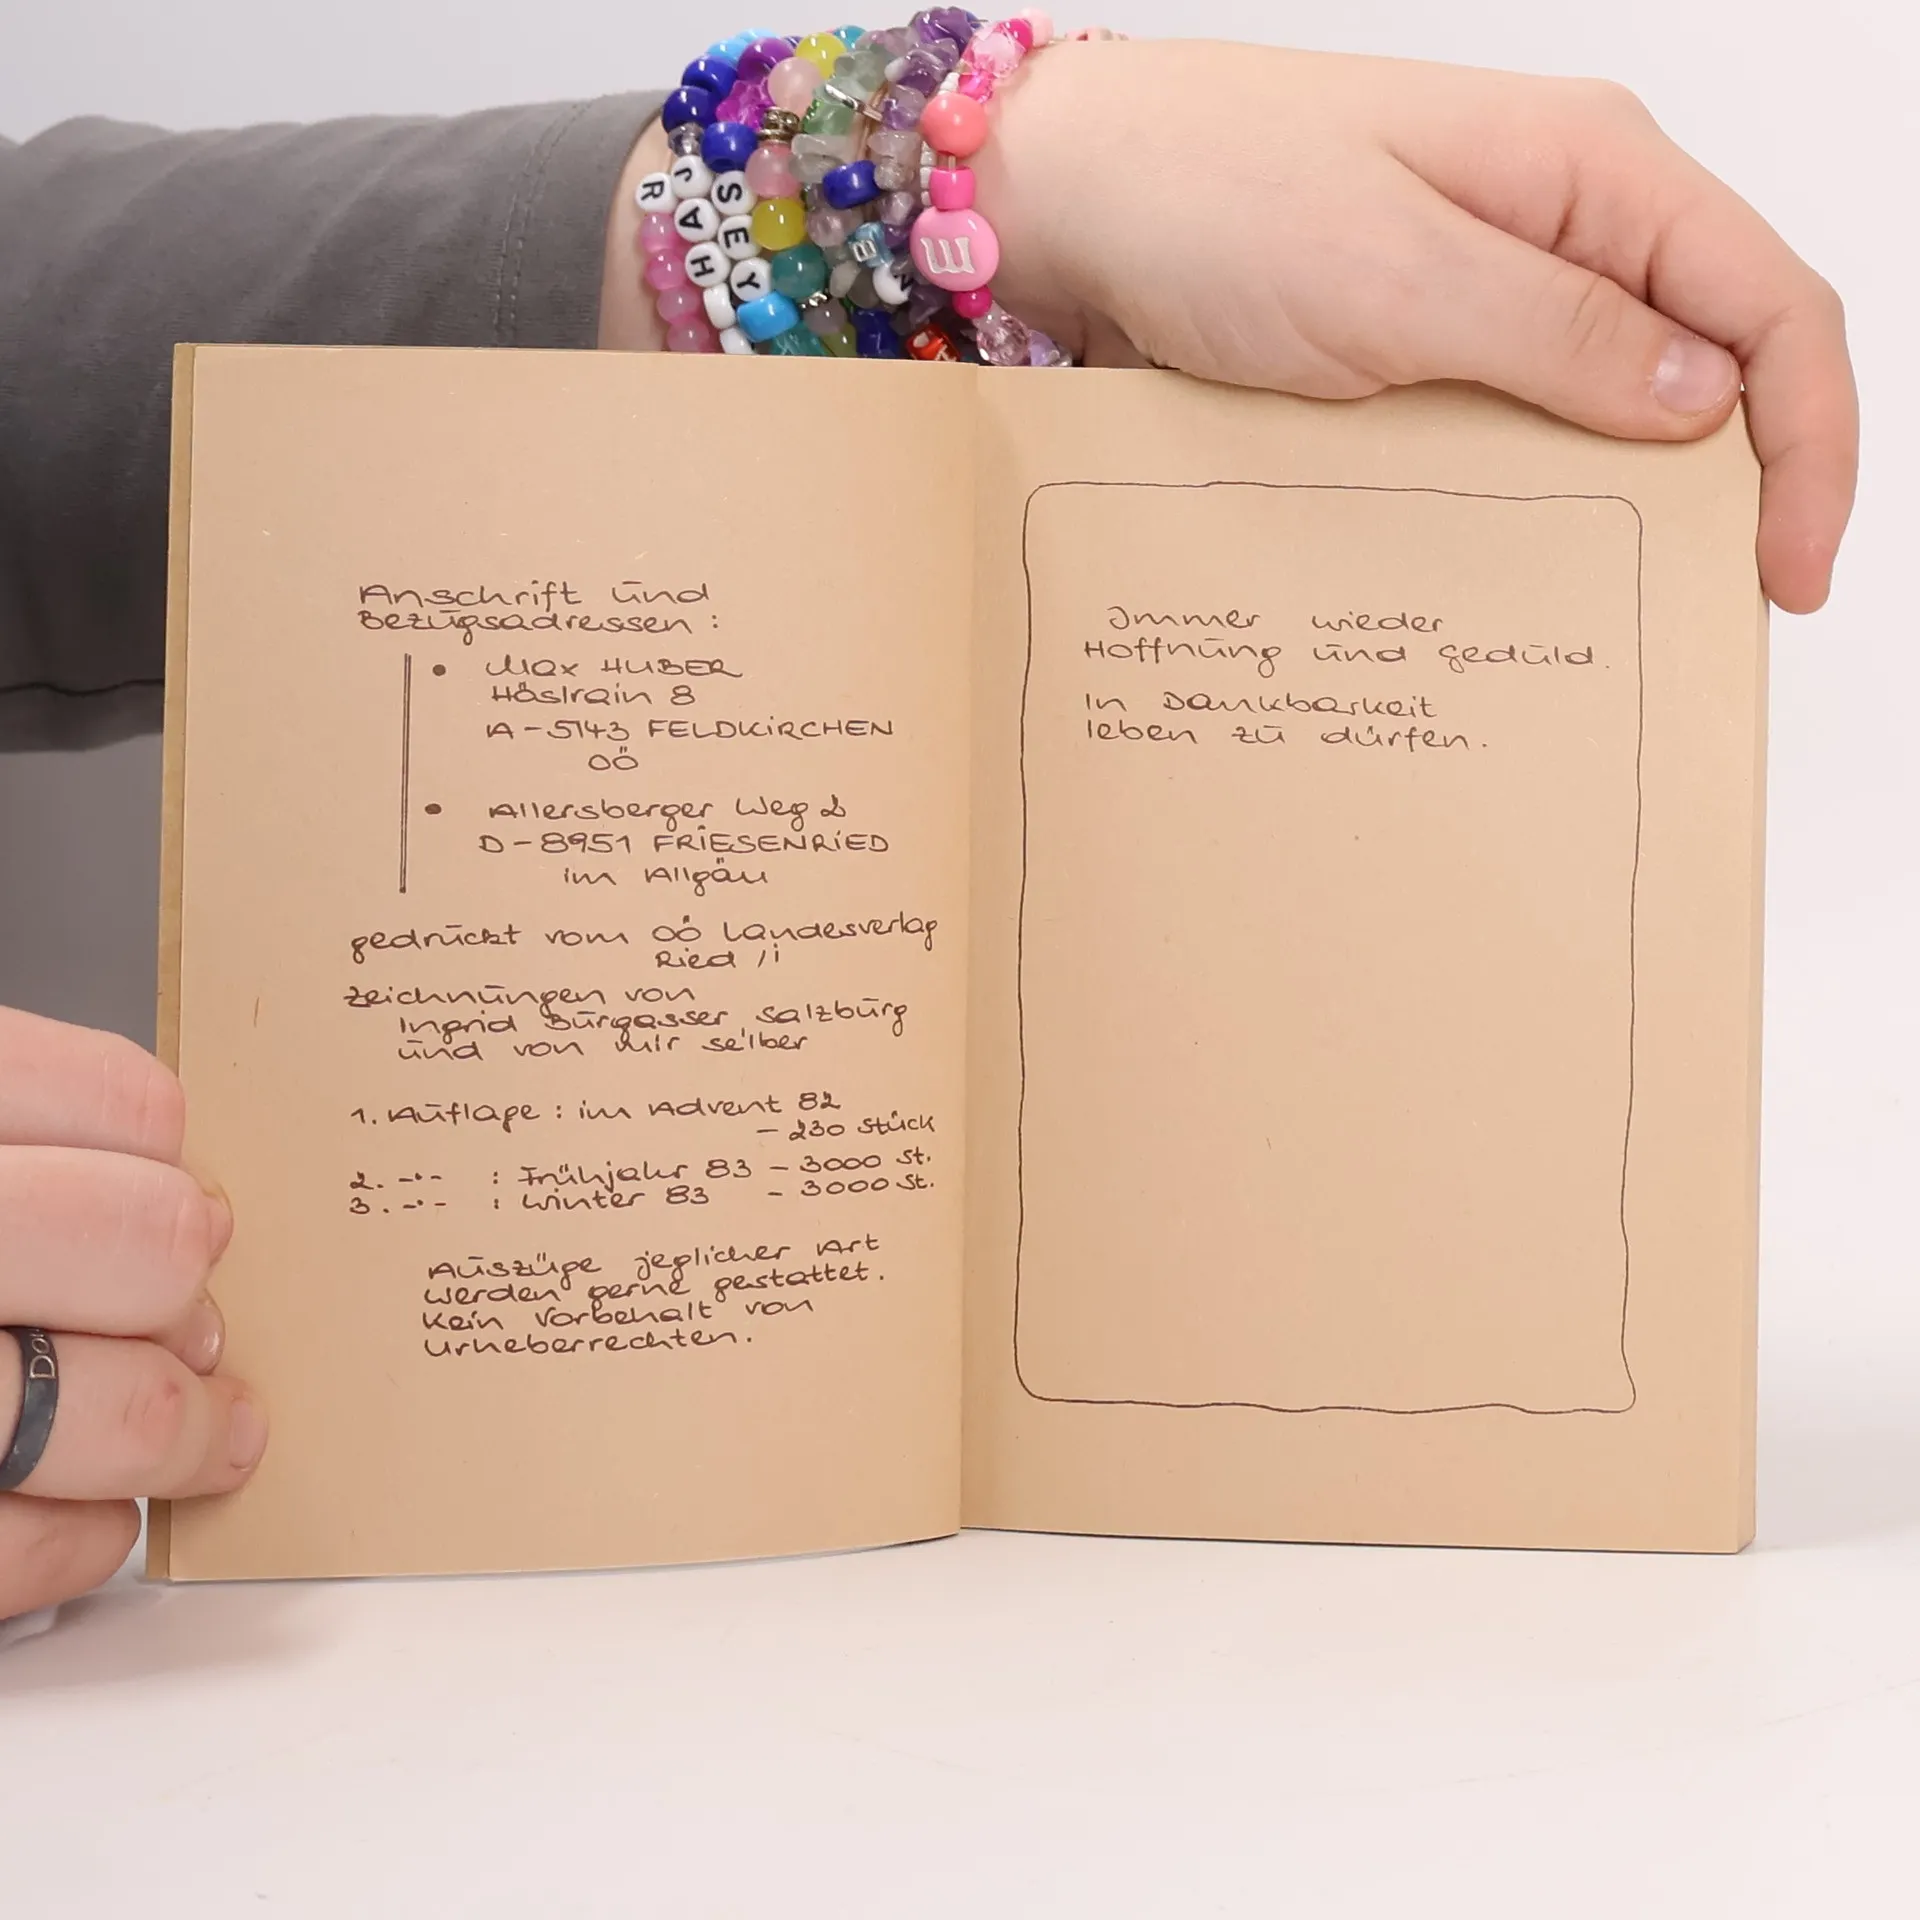 R
JAH
SEY
B
N
m
Do
Anschrift und
Bezugsadressen :
• Max HUBER
Höslrain 8
A - 5143 FELDKiRCHEN
OÖ
• Allersberger Weg 2
D - 8951 FRiESENRiED
im Allgäu
gedruckt vom OÖ Landesverlag
Ried /i
Zeichnungen von
Ingrid Burgasser, Salzburg
und von mir selber
1. Auflage : im Advent 82
- 230 Stück
2. -"- : Frühjahr 83 - 3000 St.
3. -"- : Winter 83 - 3000 St.
Auszüge jeglicher Art
werden gerne gestattet.
Kein Vorbehalt von
Urheberrechten.
Immer wieder
Hoffnung und Geduld.
In Dankbarkeit
leben zu dürfen.